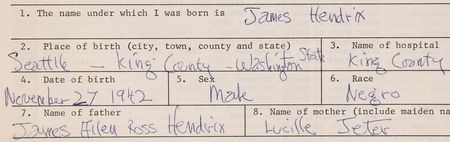 1. The name under which I was born is James Hendrix
2. Place of birth (city, town, county and state) 3. Name of hospital
Seattle - King County - Washington State King County
4. Date of birth 5. Sex 6. Race
November 27 1942 Male Negro
7. Name of father 8. Name of mother (include maiden na
James Allen Ross Hendrix Lucille Jeter